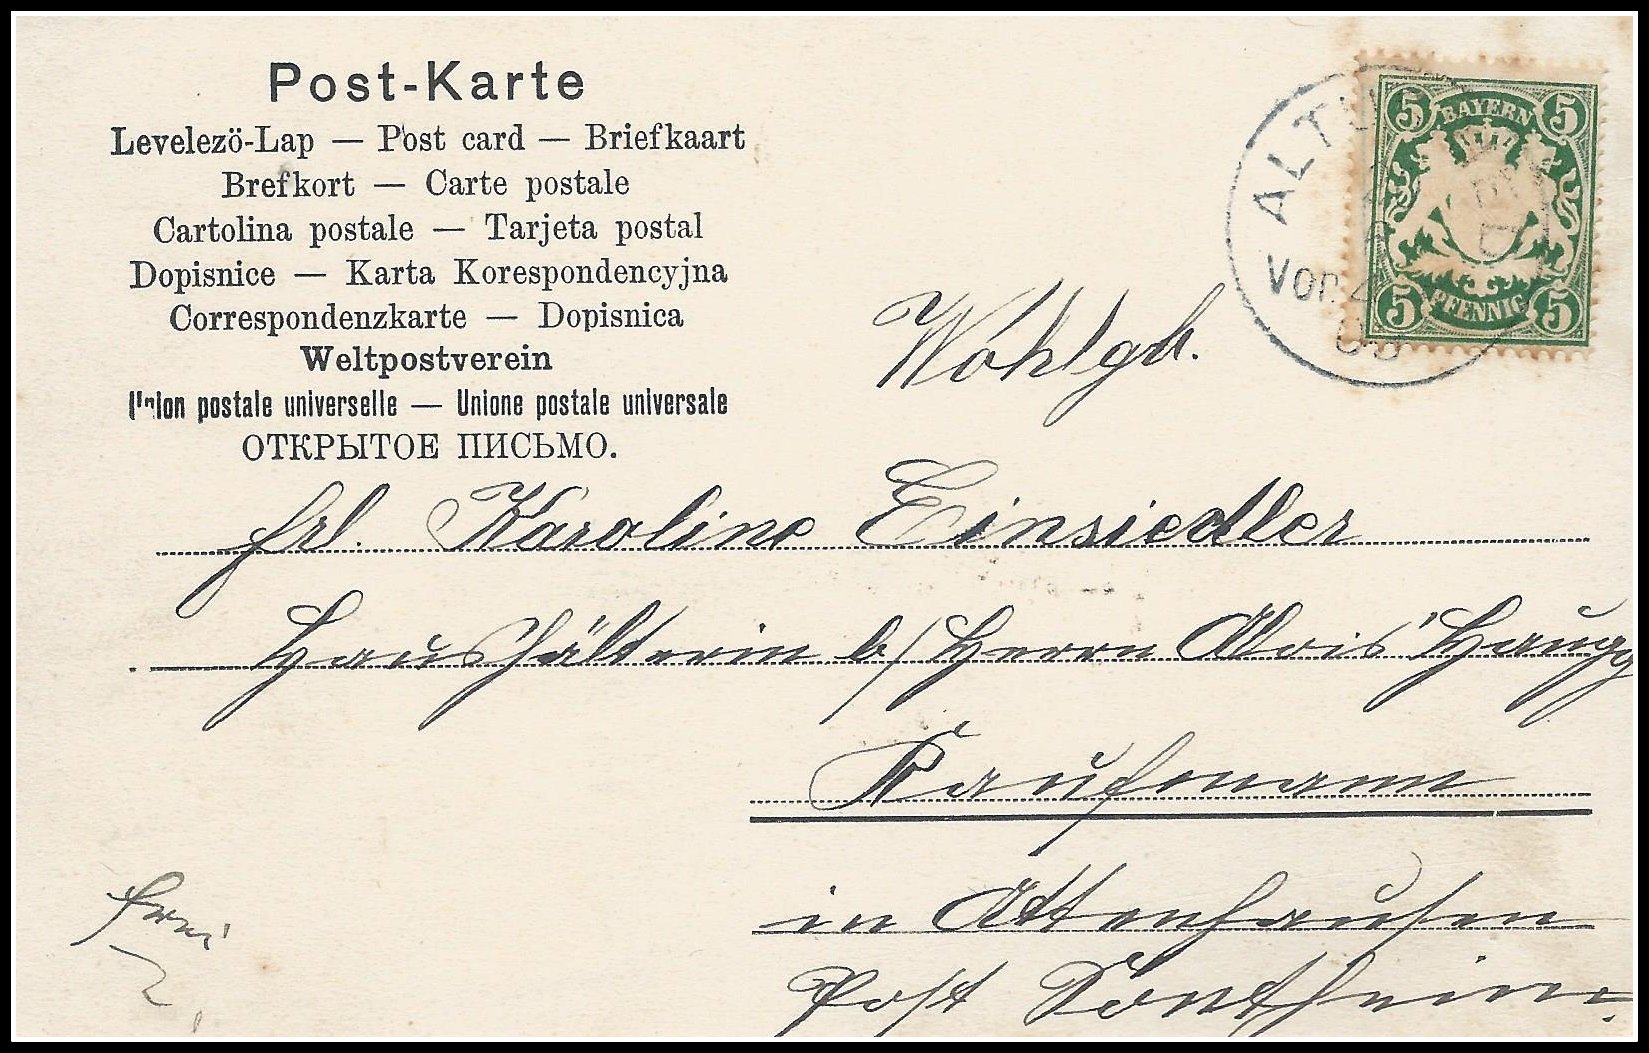 Post-Karte
Levelező-Lap — Post card — Briefkaart
Brefkort — Carte postale
Cartolina postale — Tarjeta postal
Dopisnice — Karta Korespondencyjna
Correspondenzkarte — Dopisnica
Weltpostverein
Union postale universelle — Unione postale universale
ОТКРЫТОЕ ПИСЬМО.
5 BAYERN 5
5 PFENNIG 5
ALTU
Vor.
Wohlgb.
Frl. Karoline Einsiedler
Haushälterin b/Herrn Alois Haugg
Kaufmann
in Attenhausen
Post Sontheim.
frei